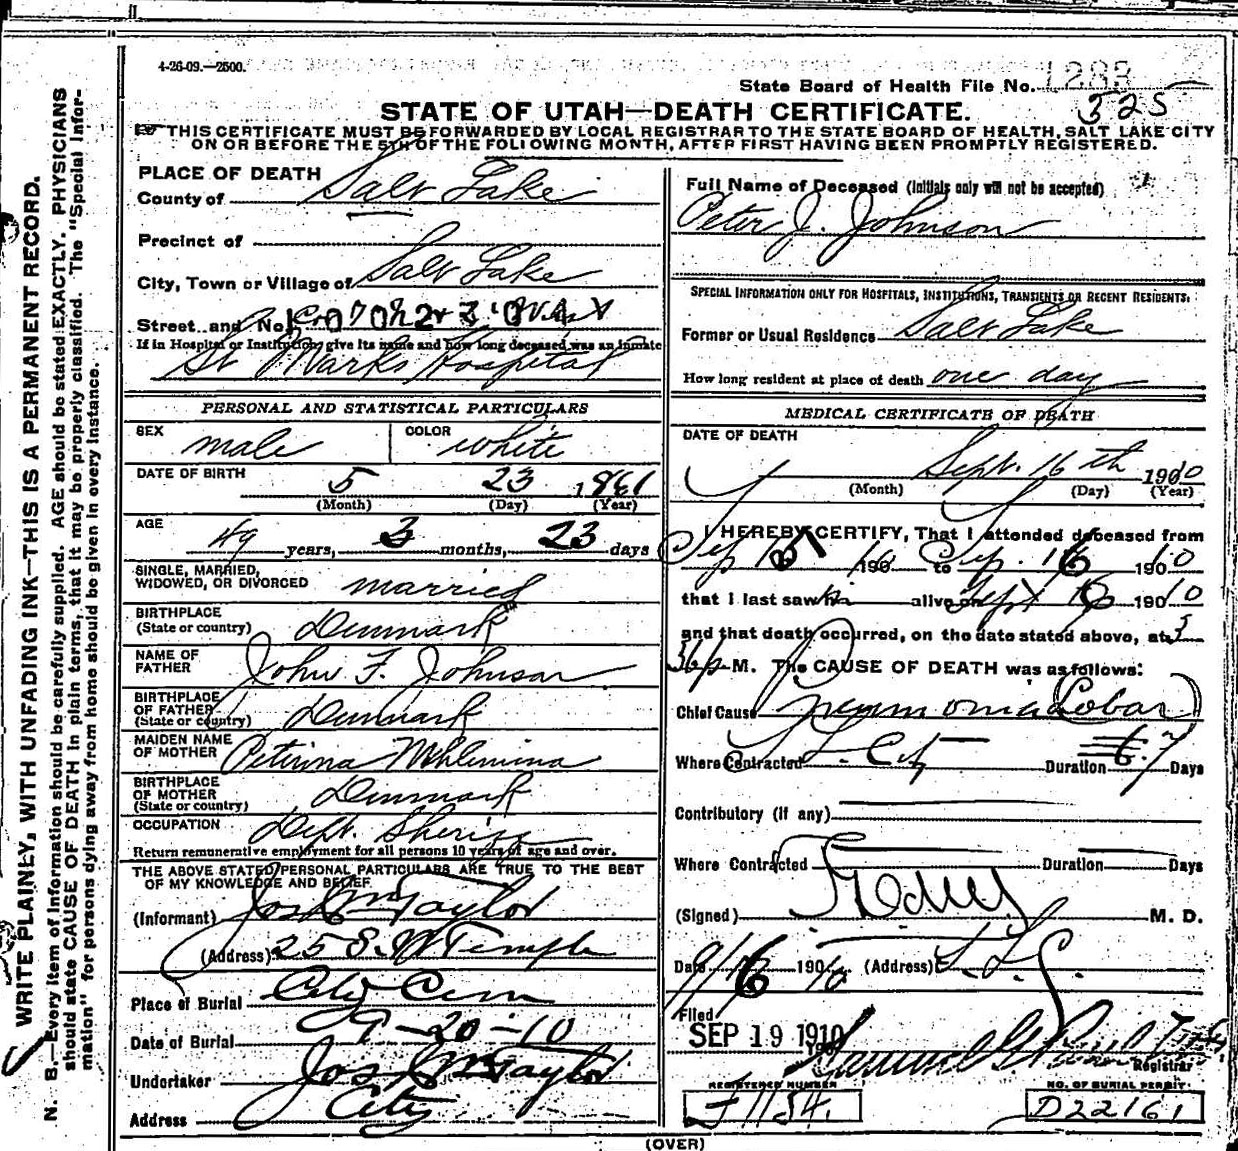 4-26-09.—2500.
State Board of Health File No. 1283
325
STATE OF UTAH—DEATH CERTIFICATE.
THIS CERTIFICATE MUST BE FORWARDED BY LOCAL REGISTRAR TO THE STATE BOARD OF HEALTH, SALT LAKE CITY
ON OR BEFORE THE 5TH OF THE FOLLOWING MONTH, AFTER FIRST HAVING BEEN PROMPTLY REGISTERED.
WRITE PLAINLY, WITH UNFADING INK—THIS IS A PERMANENT RECORD.
N. B.—Every item of information should be carefully supplied. AGE should be stated EXACTLY. PHYSICIANS
should state CAUSE OF DEATH in plain terms, that it may be properly classified. The "Special Infor-
mation" for persons dying away from home should be given in every instance.
PLACE OF DEATH
County of Salt Lake
Precinct of
City, Town or Village of Salt Lake
Street and No.
If in Hospital or Institution, give its name and how long deceased was an inmate
St Marks Hospital
PERSONAL AND STATISTICAL PARTICULARS
SEX male COLOR white
DATE OF BIRTH 5 23 1861
(Month) (Day) (Year)
AGE
49 years, 3 months, 23 days
SINGLE, MARRIED,
WIDOWED, OR DIVORCED married
BIRTHPLACE
(State or country) Denmark
NAME OF
FATHER John F. Johnson
BIRTHPLACE
OF FATHER
(State or country) Denmark
MAIDEN NAME
OF MOTHER Petrina
BIRTHPLACE
OF MOTHER
(State or country) Denmark
OCCUPATION Dept. Sheriff
Return remunerative employment for all persons 10 years of age and over.
THE ABOVE STATED PERSONAL PARTICULARS ARE TRUE TO THE BEST
OF MY KNOWLEDGE AND BELIEF
(Informant) Jos Wm Taylor
(Address) 25 S. W Temple
Place of Burial City Cem
Date of Burial 9-20-10
Undertaker Jos Wm Taylor
Address City
Full Name of Deceased (Initials only will not be accepted)
Peter J. Johnson
SPECIAL INFORMATION ONLY FOR HOSPITALS, INSTITUTIONS, TRANSIENTS OR RECENT RESIDENTS:
Former or Usual Residence Salt Lake
How long resident at place of death one day
MEDICAL CERTIFICATE OF DEATH
DATE OF DEATH
Sept. 16th 1910
(Month) (Day) (Year)
I HEREBY CERTIFY, That I attended deceased from
Sep 190 to Sep. 16 1910
that I last saw h alive on Sept 16 1910
and that death occurred, on the date stated above, at 3
M. The CAUSE OF DEATH was as follows:
Chief Cause Pneumonia (Lobar)
Where Contracted S. L. City Duration Days
Contributory (if any)
Where Contracted Duration Days
(Signed) M. D.
Date 9/16 1910 (Address) S. L. C.
Filed
SEP 19 1910
Registrar
REGISTERED NUMBER
J 1154.
NO. OF BURIAL PERMIT
D22161
(OVER)